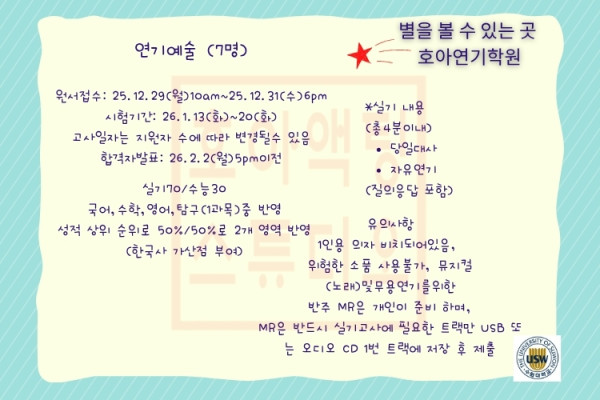 별을 볼 수 있는 곳
호아연기학원
연기예술 (7명)
원서접수: 25.12.29(월)10am~25.12.31(수)6pm
시험기간: 26.1.13(화)~20(화)
고사일자는 지원자 수에 따라 변경될수 있음
합격자발표: 26.2.2(월)5pm이전
실기70/수능30
국어,수학,영어,탐구(1과목)중 반영
성적 상위 순위로 50%/50%로 2개 영역 반영
(한국사 가산점 부여)
*실기 내용
(총4분이내)
• 당일대사
• 자유연기
(질의응답 포함)
유의사항
1인용 의자 비치되어있음,
위험한 소품 사용불가, 뮤지컬
(노래)및무용연기를위한
반주 MR은 개인이 준비 하며,
MR은 반드시 실기고사에 필요한 트랙만 USB 또
는 오디오 CD 1번 트랙에 저장 후 제출
호아액팅
스튜디오
THE UNIVERSITY OF SUWON
USW
수원대학교